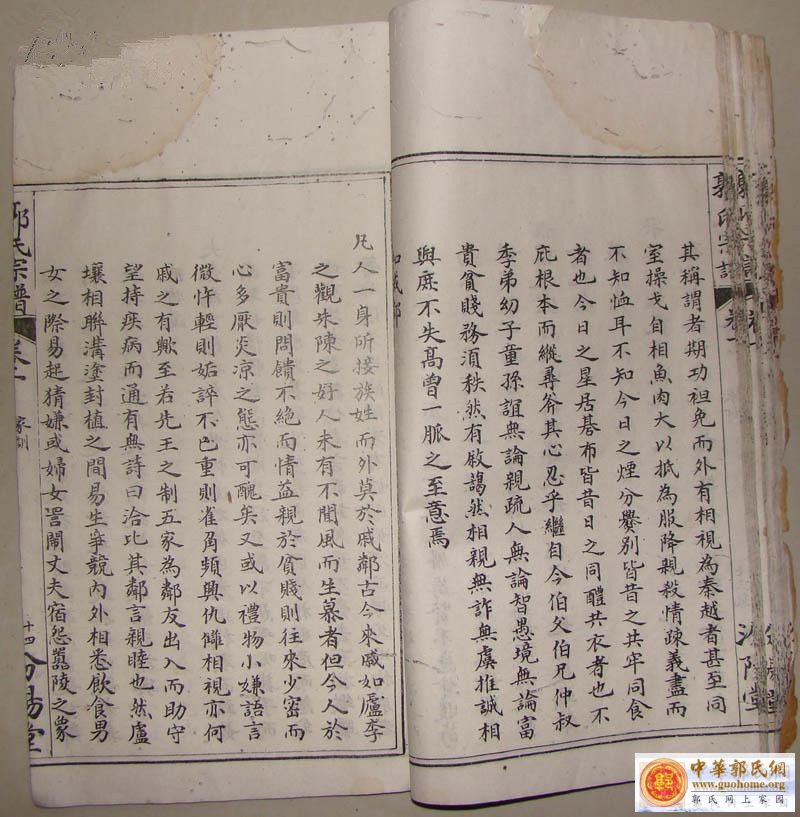 郭氏宗譜
其稱謂者期功袒免而外有相視為秦越者甚至同
室操戈自相魚肉大以抵為服降親殺情疎義盡而
不知恤耳不知今日之煙分爨別皆昔之共牢同食
者也今日之星居碁布皆昔日之同醴共衣者也不
庇根本而縱尋斧其心忍乎繼自今伯父伯兄仲叔
季弟幼子童孫誼無論親疏人無論智愚境無論富
貴貧賤務須秩然有敘藹然相親無詐無虞推誠相
與庶不失高曾一脈之至意焉
和戚鄰
凡人一身所接族姓而外莫於戚鄰古今來戚如盧李
之觀朱陳之好人未有不聞風而生慕者但今人於
富貴則問饋不絕而情益親於貧賤則往來少密而
心多厭炎涼之態亦可醜矣又或以禮物小嫌語言
微忤輕則妬誶不已重則雀角頻興仇讎相視亦何
戚之有歟至若先王之制五家為鄰友出入而助守
望持疾病而通有無詩曰洽比其鄰言親睦也然廬
壤相聯溝塗封植之間易生爭競內外相悉飲食男
女之際易起猜嫌或婦女詈鬧丈夫宿怨囂陵之象
郭氏宗譜
卷一
家訓
十四
汾陽堂
汾陽堂
中華郭氏網
www.guohome.org
郭氏網上家園